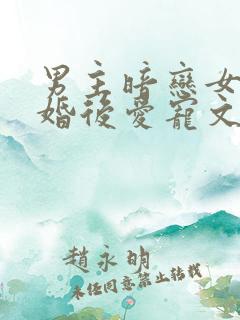 男主暗戀女
婚後愛寵文
趙永明
未任同意禁止轉載